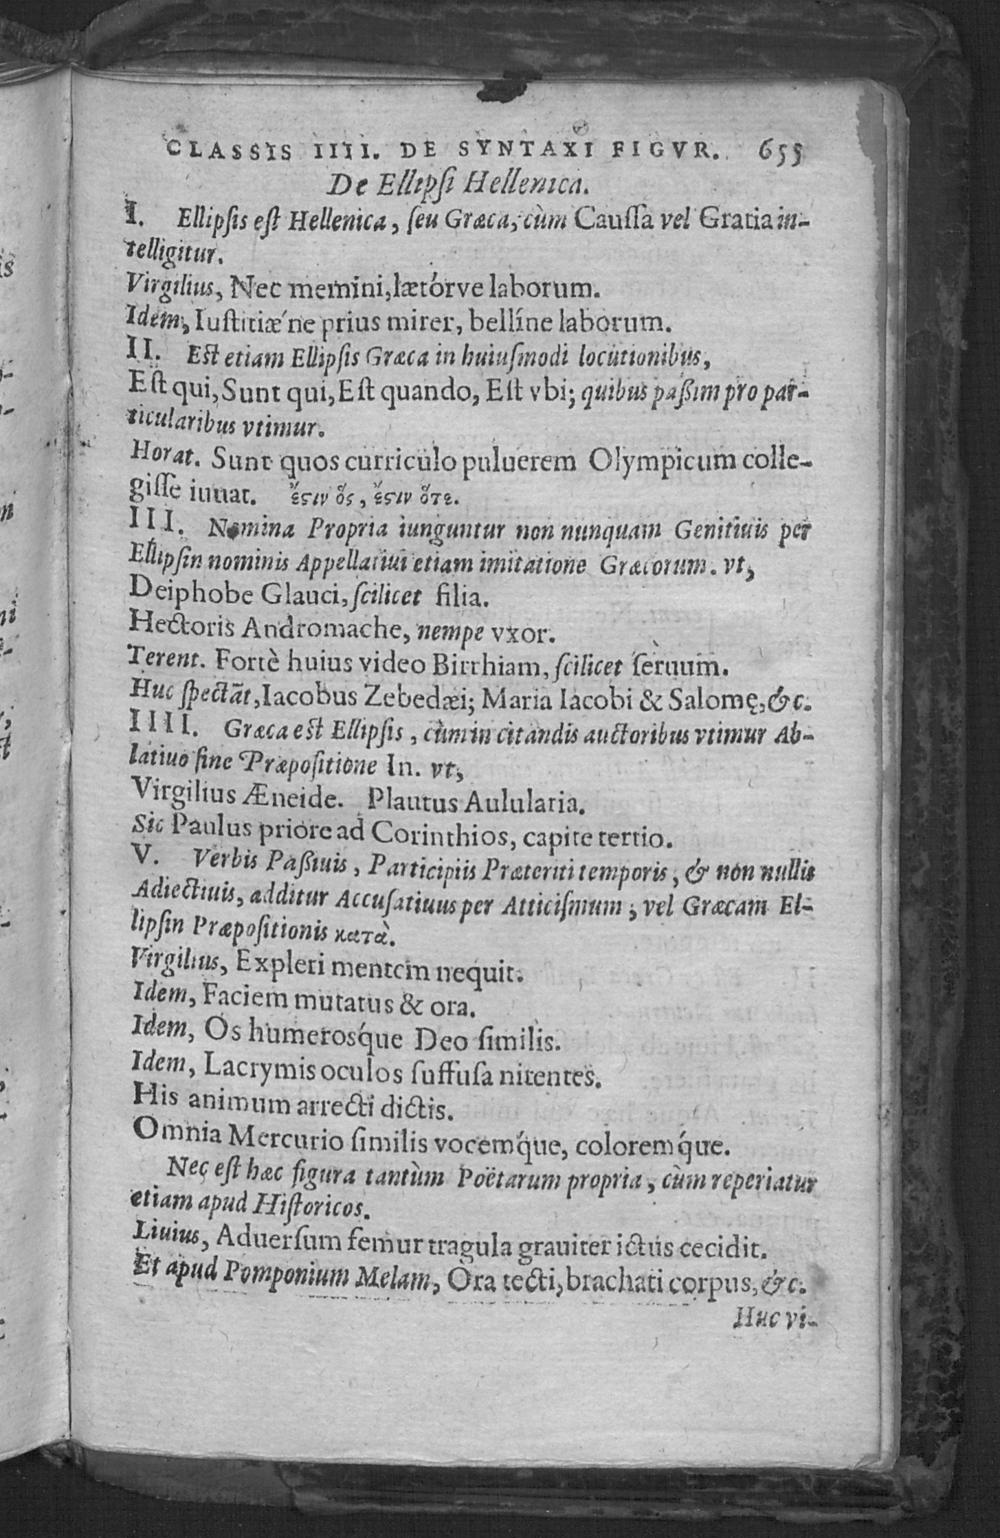 CLASSIS IIII. DE SYNTAXI FIGVR. 655
De Ellipsi Hellenica.
I. Ellipsis est Hellenica, seu Græca, cùm Caussa vel Gratia in-
telligitur.
Virgilius, Nec memini, lætórve laborum.
Idem, Iustitiæ´ne prius mirer, bellíne laborum.
II. Est etiam Ellipsis Græca in huiusmodi locutionibus,
Est qui, Sunt qui, Est quando, Est vbi; quibus paßim pro par-
ticularibus vtimur.
Horat. Sunt quos curriculo puluerem Olympicum colle-
gisse iuuat. ἔϛιν ὅς, ἔϛιν ὅτε.
III. Nomina Propria iunguntur non nunquam Genitiuis per
Ellipsin nominis Appellatiui etiam imitatione Græcorum. vt,
Deiphobe Glauci, scilicet filia.
Hectoris Andromache, nempe vxor.
Terent. Fortè huius video Birrhiam, scilicet seruum.
Huc spectāt, Iacobus Zebedæi; Maria Iacobi & Salomę, &c.
IIII. Græca est Ellipsis, cùm in citandis auctoribus vtimur Ab-
latiuo sine Præpositione In. vt,
Virgilius Æneide. Plautus Aulularia.
Sic Paulus priore ad Corinthios, capite tertio.
V. Verbis Paßiuis, Participiis Præteriti temporis, & non nullis
Adiectiuis, additur Accusatiuus per Atticismum; vel Græcam El-
lipsin Præpositionis κατὰ.
Virgilius, Expleri mentem nequit.
Idem, Faciem mutatus & ora.
Idem, Os humerosq́ue Deo similis.
Idem, Lacrymis oculos suffusa nitentes.
His animum arrecti dictis.
Omnia Mercurio similis vocemq́ue, coloremq́ue.
Neç est hæc figura tantùm Poëtarum propria, cùm reperiatur
etiam apud Historicos.
Liuius, Aduersum femur tragula grauiter ictus cecidit.
Et apud Pomponium Melam, Ora tecti, brachati corpus, &c.
Huc vi-